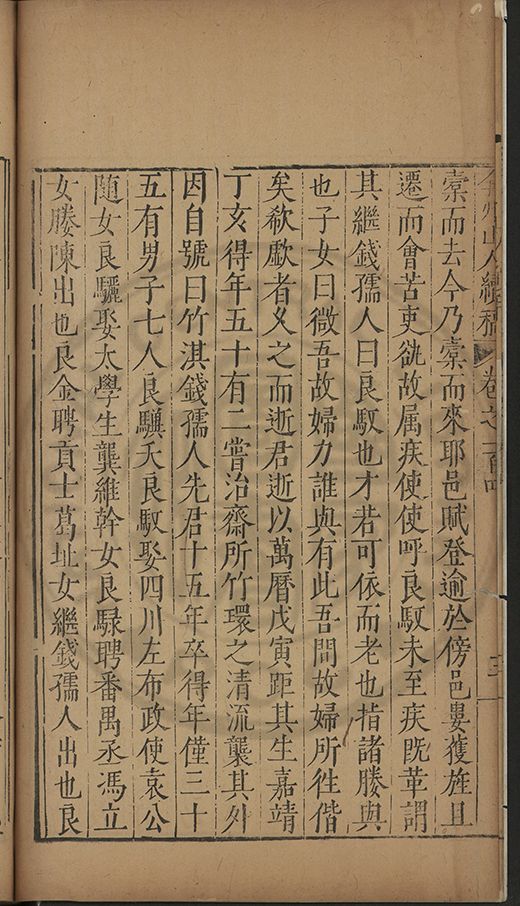 弇州山人續稿 卷之一百
槖而去今乃槖而來耶邑賦登逾於傍邑婁獲旌且
遷而會苦吏訛故属疾使使呼良馭未至疾既革謂
其繼錢孺人曰良馭也才若可依而老也指諸媵與
也子女曰微吾故婦力誰與有此吾間故婦所徃偕
矣欷歔者久之而逝君逝以萬曆戊寅距其生嘉靖
丁亥得年五十有二嘗治齋所竹環之清流襲其外
因自號曰竹淇錢孺人先君十五年卒得年僅三十
五有男子七人良驥夭良馭娶四川左布政使袁公
随女良驪娶太學生龔維幹女良騄聘番禺丞馮立
女媵陳出也良金聘貢士葛址女繼錢孺人出也良